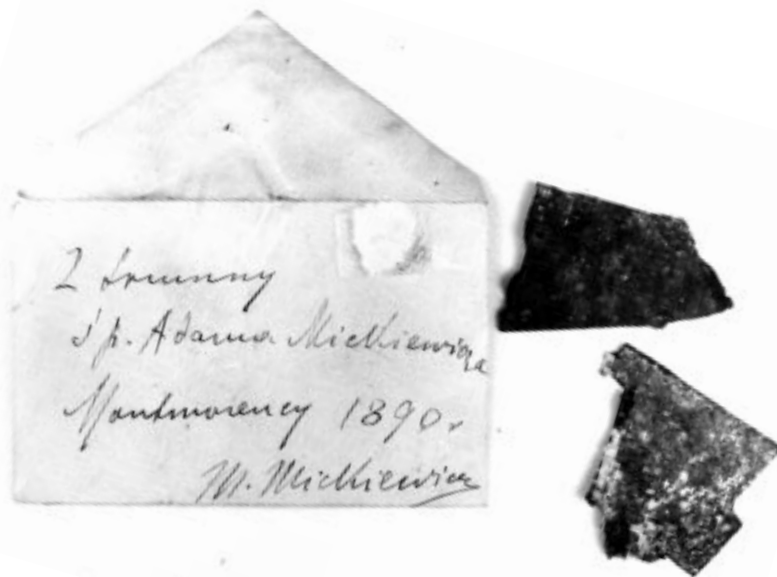 Z trumny
ś p. Adama Mickiewicza
Montmorency 1890.
M. Mickiewicz